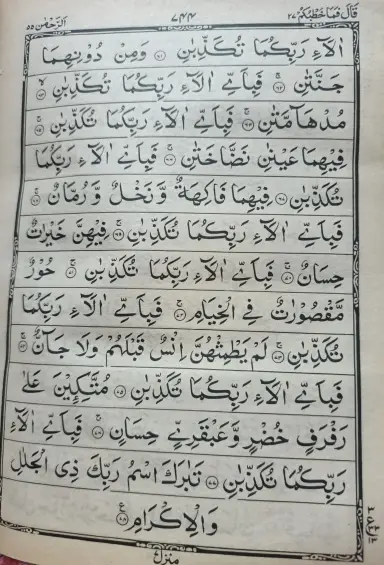 قَالَ فَمَا خَطْبُكُمْ ٢٧ ٧٤٤ اَلرَّحْمٰن ٥٥
اٰلَآءِ رَبِّكُمَا تُكَذِّبٰنِ ﴿٦١﴾ وَمِنْ دُوْنِهِمَا
جَنَّتٰنِ ﴿٦٢﴾ فَبِاَيِّ اٰلَآءِ رَبِّكُمَا تُكَذِّبٰنِ ﴿٦٣﴾
مُدْهَآمَّتٰنِ ﴿٦٤﴾ فَبِاَيِّ اٰلَآءِ رَبِّكُمَا تُكَذِّبٰنِ ﴿٦٥﴾
فِيْهِمَا عَيْنٰنِ نَضَّاخَتٰنِ ﴿٦٦﴾ فَبِاَيِّ اٰلَآءِ رَبِّكُمَا
تُكَذِّبٰنِ ﴿٦٧﴾ فِيْهِمَا فَاكِهَةٌ وَّنَخْلٌ وَّرُمَّانٌ ﴿٦٨﴾
فَبِاَيِّ اٰلَآءِ رَبِّكُمَا تُكَذِّبٰنِ ﴿٦٩﴾ فِيْهِنَّ خَيْرٰتٌ
حِسَانٌ ﴿٧٠﴾ فَبِاَيِّ اٰلَآءِ رَبِّكُمَا تُكَذِّبٰنِ ﴿٧١﴾ حُوْرٌ
مَّقْصُوْرٰتٌ فِي الْخِيَامِ ﴿٧٢﴾ فَبِاَيِّ اٰلَآءِ رَبِّكُمَا
تُكَذِّبٰنِ ﴿٧٣﴾ لَمْ يَطْمِثْهُنَّ اِنْسٌ قَبْلَهُمْ وَلَا جَآنٌّ ﴿٧٤﴾
فَبِاَيِّ اٰلَآءِ رَبِّكُمَا تُكَذِّبٰنِ ﴿٧٥﴾ مُتَّكِـِٕيْنَ عَلٰى
رَفْرَفٍ خُضْرٍ وَّعَبْقَرِيٍّ حِسَانٍ ﴿٧٦﴾ فَبِاَيِّ اٰلَآءِ
رَبِّكُمَا تُكَذِّبٰنِ ﴿٧٧﴾ تَبٰرَكَ اسْمُ رَبِّكَ ذِي الْجَلٰلِ
وَالْاِكْرَامِ ﴿٧٨﴾
منزل